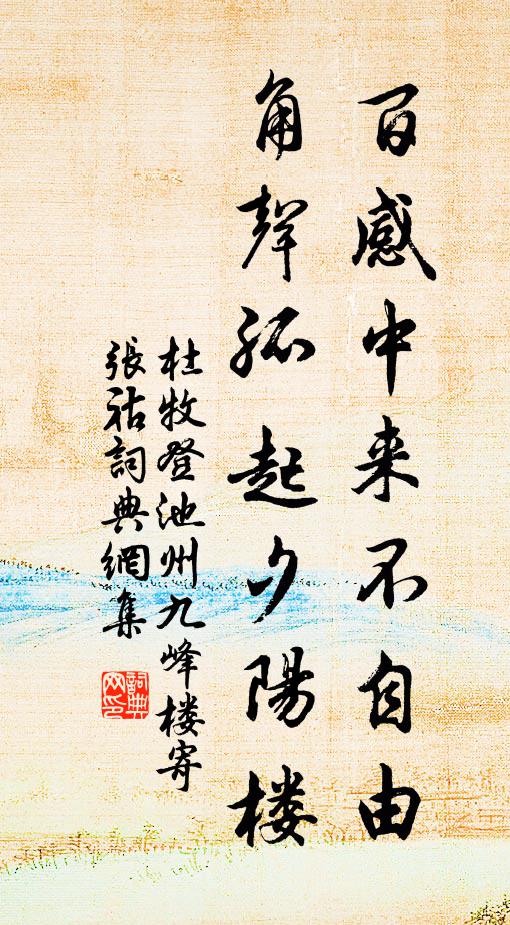 百感中来不自由
角聲孤起夕陽楼
杜牧登池州九峰楼寄
張祜詞典網集
詞典
网印